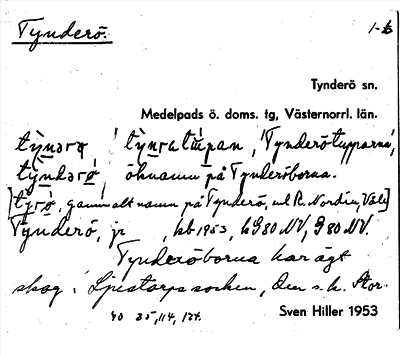 Tynderö. 1-6
Tynderö sn.
Medelpads ö. doms. tg, Västernorrl. län.
'Tynderötupparna',
öknamn på Tynderöborna.
gammalt namn på Tynderö, enl R. Nordin, Vale]
Tynderö, jr , kb 1953, k G80 NV, G80 NV.
Tynderöborna har ägt
skog i Ljustorps socken, den s. k. Stor-
40 35, 114, 124. Sven Hiller 1953